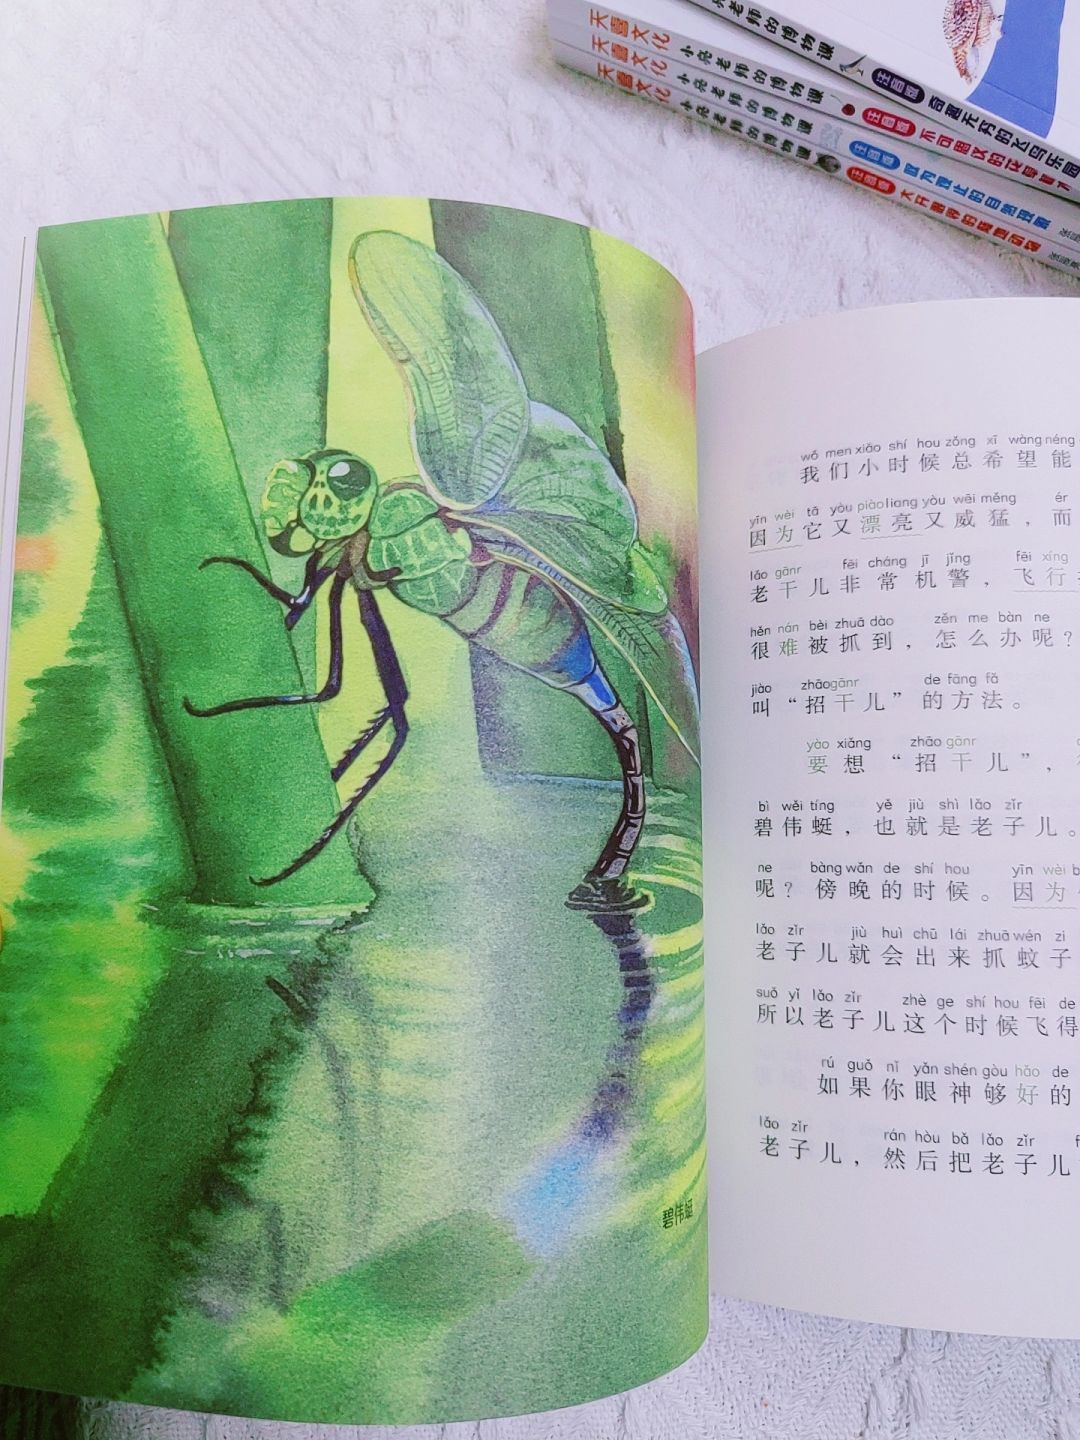 天喜文化 小亮老师的博物课 注音版
天喜文化 小亮老师的博物课 注音版
天喜文化 小亮老师的博物课 注音版
小亮老师的博物课 注音版
wǒ men xiǎo shí hou zǒng xī wàng néng
我们小时候总希望能
yīn wèi tā yòu piào liang yòu wēi měng ér
因为它又漂亮又威猛，而
lǎo gānr fēi cháng jī jǐng fēi xíng
老干儿非常机警，飞行
hěn nán bèi zhuā dào zěn me bàn ne
很难被抓到，怎么办呢？
jiào zhāo gānr de fāng fǎ
叫“招干儿”的方法。
yào xiǎng zhāo gānr
要想“招干儿”，
bì wěi tíng yě jiù shì lǎo zǐr
碧伟蜓，也就是老子儿。
ne bàng wǎn de shí hou yīn wèi
呢？傍晚的时候。因为
lǎo zǐr jiù huì chū lái zhuā wén zi
老子儿就会出来抓蚊子
suǒ yǐ lǎo zǐr zhè ge shí hou fēi de
所以老子儿这个时候飞得
rú guǒ nǐ yǎn shén gòu hǎo de
如果你眼神够好的
lǎo zǐr rán hòu bǎ lǎo zǐr
老子儿，然后把老子儿
碧伟蜓